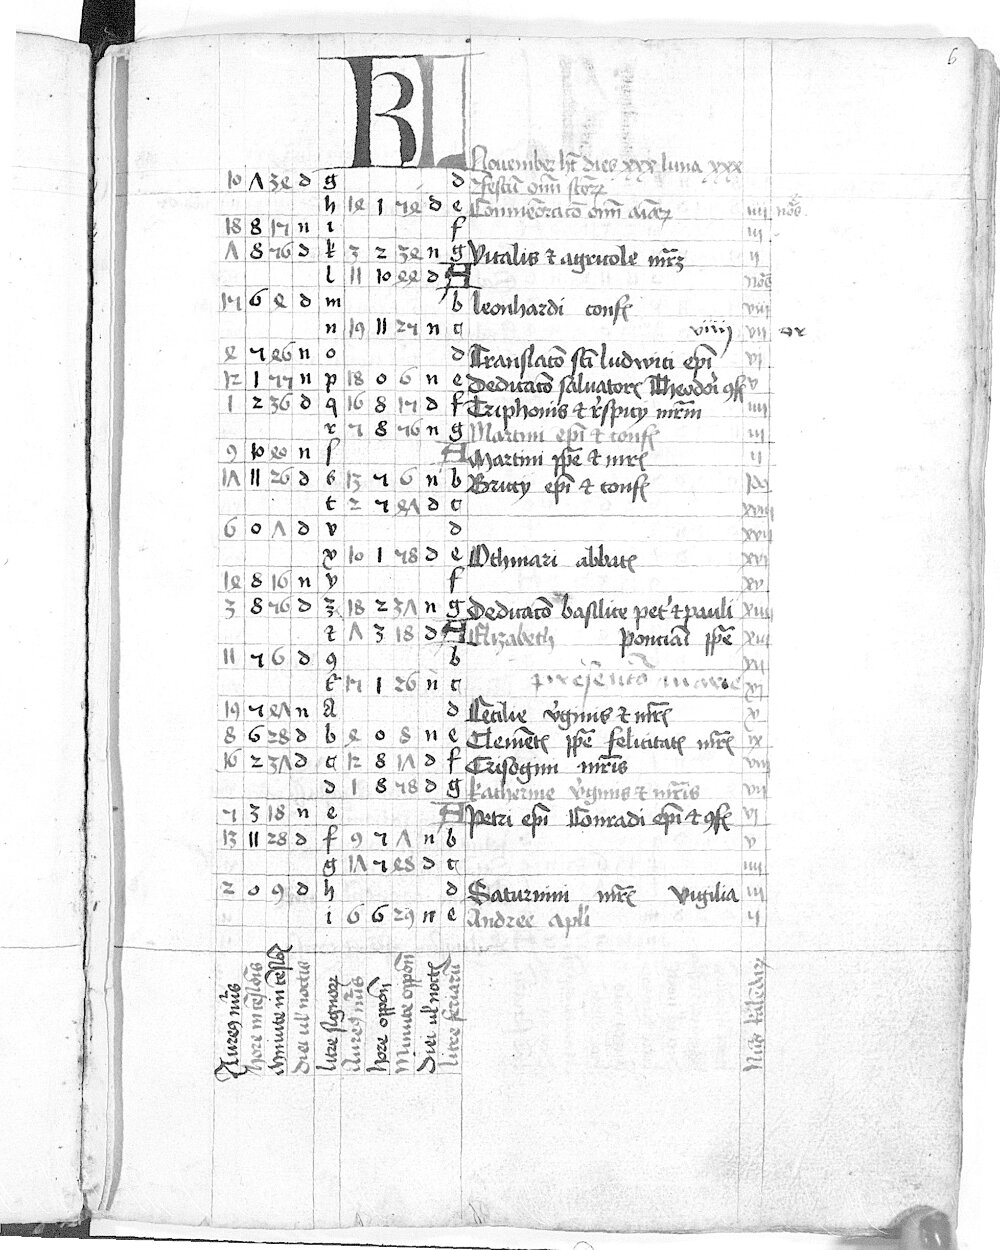 6
KL
November ht dies xxx luna xxx
10 Λ 3e d g d Festu om
h 1e 1 7e d e Commeoraco om aiar iiij nos
18 8 17 n i f iij
Λ 8 76 d k 3 2 3e n g Vitalis et agricole mr ij
l 11 10 ee d A nos
17 6 e d m b leonhardi conf viij
n 19 11 27 n c viiij vij
e 7 e6 n o d Translaco sci ludwici epi vj
12 1 77 n p 18 0 6 n e Dedicaco salvator Theodori v
1 2 36 d q 16 8 17 d f Triphonis et r'spicy mrm iiij
r 7 8 76 n g Martini epi et conf iij
9 10 e0 n s A Martini ppe et mr ij
1Λ 11 26 d 6 13 7 6 n b Bricy epi et conf
t 2 7 eΛ d c xviij
6 0 Λ d v d xvij
x 10 1 78 d e Othmari abbat xvj
1e 8 16 n y f xv
3 8 76 d z 18 2 3Λ n g Dedicaco basilice pet' et pauli xiiij
Λ 3 18 d A Elizabeth ponciani ppe xiij
11 7 6 d 9 b xij
17 1 26 n c presentaco marie xj
19 7 eΛ n a d Cecilie v'ginis et mr x
8 6 28 d b e 0 8 n e Clement ppe felicitat mr ix
16 2 3Λ d c 12 8 1Λ d f Crisogni mris viij
d 1 8 78 d g katherine v'ginis et mris vij
7 3 18 n e A Petri epi Conradi epi et 9f vj
13 11 28 d f 9 7 Λ n b v
g 1Λ 7 e8 d c iiij
2 0 9 d h d Saturnini mr vigilia iij
i 6 6 29 n e Andree apli ij
Aureg nus
hore intesionis
minute
diei ul noctis
litre signor
Aureg nus
hore oppon
Minute oppon
Diei ul noct
litre feriaru
Nus kalendar